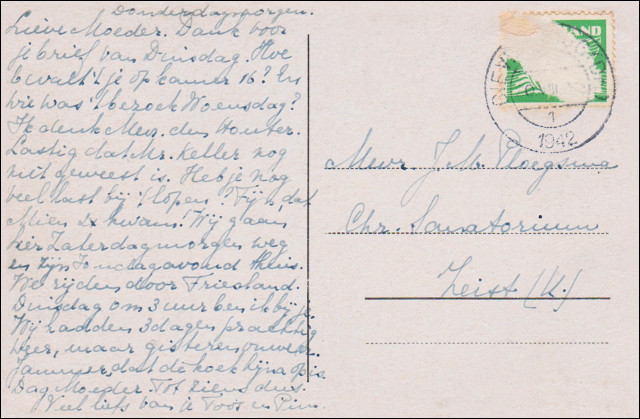 Donderdagmorgen.
Lieve Moeder. Dank voor
je brief van Dinsdag. Hoe
bevalt 't je op kamer 16? En
wie was 't bezoek Woensdag?
Ik denk Mevr. den Houter.
Lastig dat Mr. Keller nog
niet geweest is. Heb je nog
veel last bij 't lopen? Fijn, dat
Mien 2x kwam! Wij gaan
hier Zaterdagmorgen weg
en zijn Zondagavond thuis.
We rijden door Friesland.
Dinsdag om 3 uur ben ik bij je.
Wij hadden 3 dagen prachtig
weer, maar gisteren onweer.
Jammer, dat de koek bijna op is.
Dag Moeder Tot ziens dus.
Veel liefs van je Toos en Pim.
LAND
1
1942
Mevr. J. M. Ploegsma
Chr. Sanatorium
Zeist (U.)